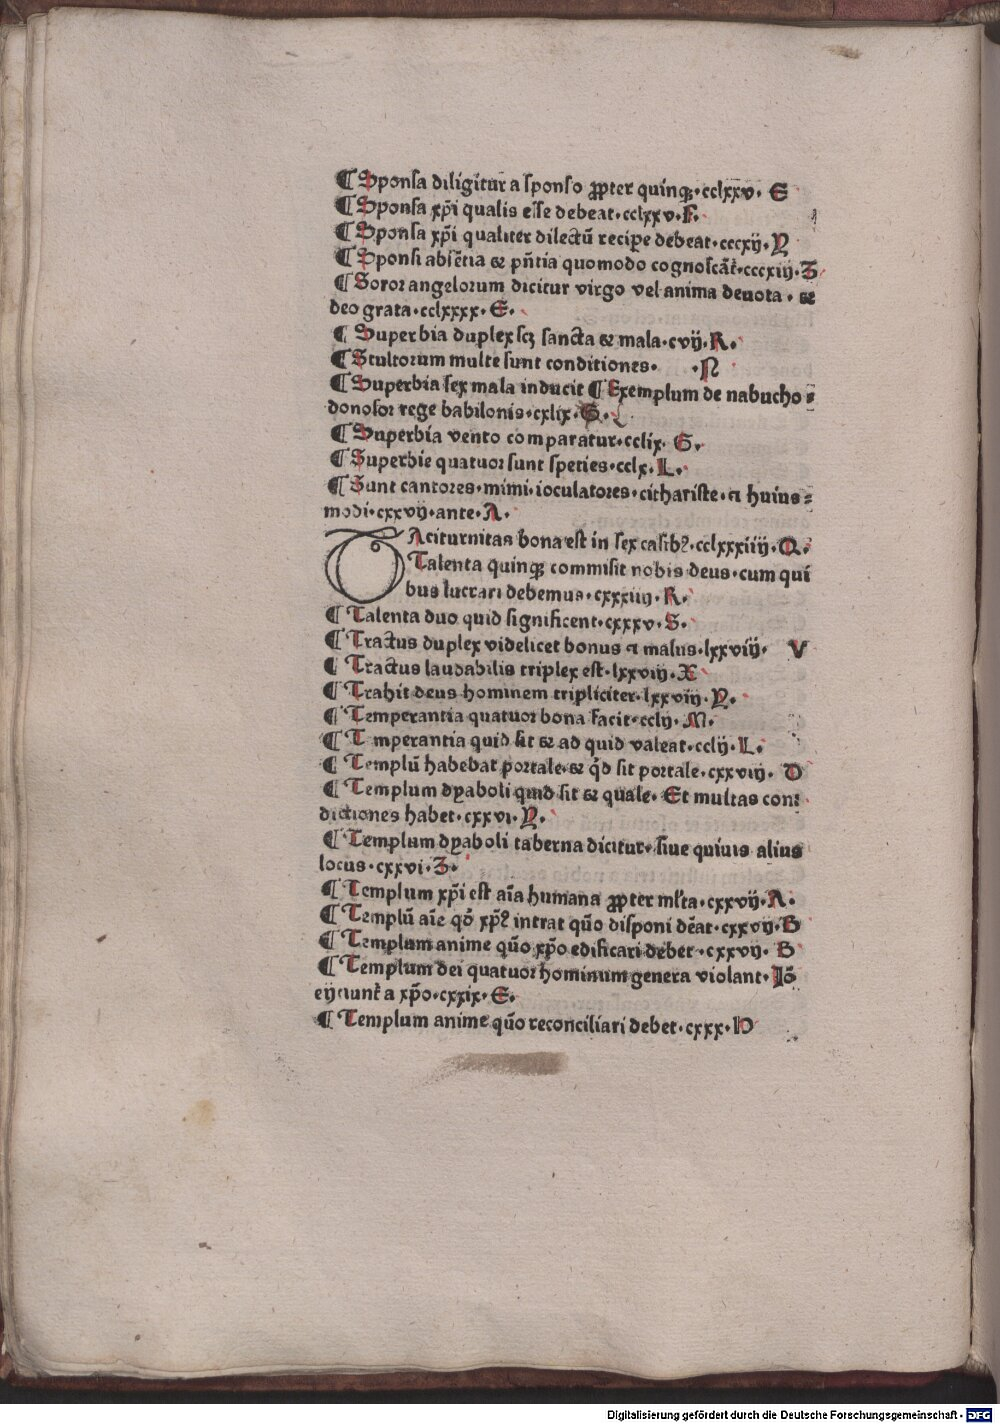 ¶ Sponsa diligitur a sponso ꝓpter quinqꝫ·cclxxv· E
¶ Sponsa xp̄i qualis esse debeat·cclxxv·F·
¶ Sponsa xp̄i qualiter dilectū recipe debeat·cccxij·Y
¶ Sponsi absētia ⁊ pñtia quomodo cognoscāt᷑·cccxij·Z
¶ Soror angelorum dicitur virgo vel anima deuota · ⁊
deo grata·cclxxxx·E·
¶ Superbia duplex scꝫ sancta ⁊ mala·cvij·R·
¶ Stultorum multe sunt conditiones· ·N
¶ Superbia sex mala inducit ¶ Exemplum de nabucho⸗
donosor rege babilonis·cxlix·G·
¶ Superbia vento comparatur·cclix· G·
¶ Superbie quatuor sunt speties·cclx·L·
¶ Sunt cantores·mimi·ioculatores·cithariste·⁊ huius⸗
modi·cxxvij·ante·A·
TAciturnitas bona est in sex casibꝰ·cclxxxiiij·Q·
Talenta quinqꝫ commisit nobis deus·cum qui
bus lucrari debemus·cxxxiiij·R·
¶ Talenta duo quid significent·cxxxv·S·
¶ Tractus duplex videlicet bonus ⁊ malus·lxxviij· V
¶ Tractus laudabilis triplex est·lxxviij·X
¶ Trahit deus hominem tripliciter·lxxviij·Y·
¶ Temperantia quatuor bona facit·cclij·M·
¶ T mperantia quid sit ⁊ ad quid valeat·cclij·L·
¶ Templū habebat portale·⁊ qͥd sit portale·cxxviij· D
¶ Templum dyaboli quid sit ⁊ quale· Et multas con⸗
dictiones habet·cxxvi·Y·
¶ Templum dyaboli taberna dicitur·siue quiuis alius
locus·cxxvi·Z·
¶ Templum xp̄i est aīa humana ꝓpter ml̄ta·cxxvij·A·
¶ Templū aīe qō xp̄ꝰ intrat quō disponi dēat·cxxvij·B
¶ Templum anime quō xp̄o edificari debet·cxxvij· B
¶ Templum dei quatuor hominum genera violant·Iō
eijciunt᷑ a xp̄o·cxxix·E·
¶ Templum anime quō reconciliari debet·cxxx·H
Digitalisierung gefördert durch die Deutsche Forschungsgemeinschaft - DFG